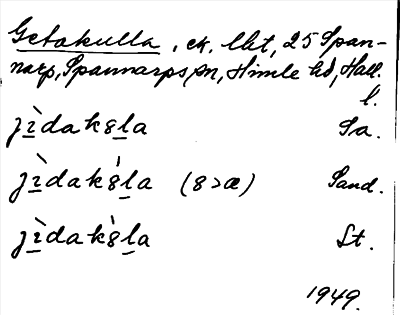 Getakulla, ek. lht, 25 Span-
narp, Spannarps sn, Himle hd, Hall.
l.
jìdaks̀la Sa.
jìdakśla (8>œ) Sand.
jìdaks̀la St.
1949.